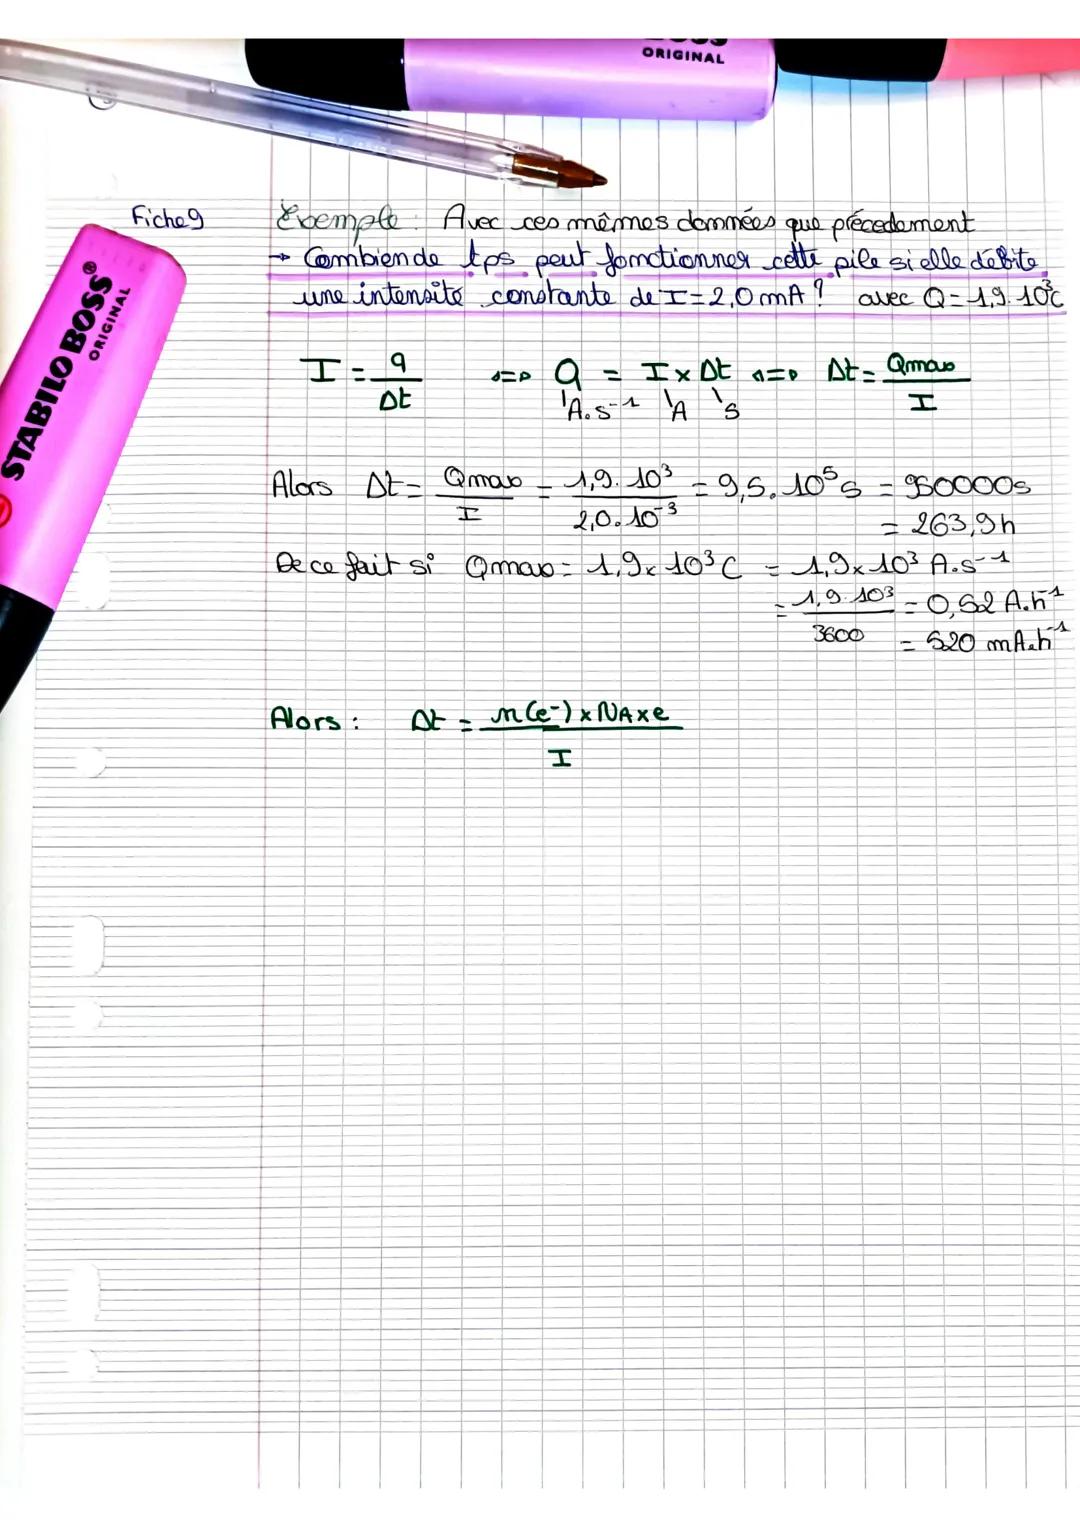 ORIGINAL
Fiche 9
Exemple : Avec ces mêmes données que précedament
→ Combien de tps peut fonctionner cette pile si elle débite
une intensité constante de I = 2,0 mA ? avec Q = 1,9. 10³C
STABILO BOSS®
ORIGINAL
I = q / Δt ⇔ Q = I x Δt ⇔ Δt = Qmax / I
A.s⁻¹ A s
Alors Δt = Qmax / I = 1,9. 10³ / 2,0. 10⁻³ = 9,5. 10⁵ s = 950000s
= 263,9h
De ce fait si Qmax = 1,9 x 10³ C = 1,9 x 10³ A.s⁻¹
= 1,9. 10³ / 3600 = 0,52 A.h⁻¹
= 520 mA.h⁻¹
Alors : Δt = n(e⁻) x NA x e / I